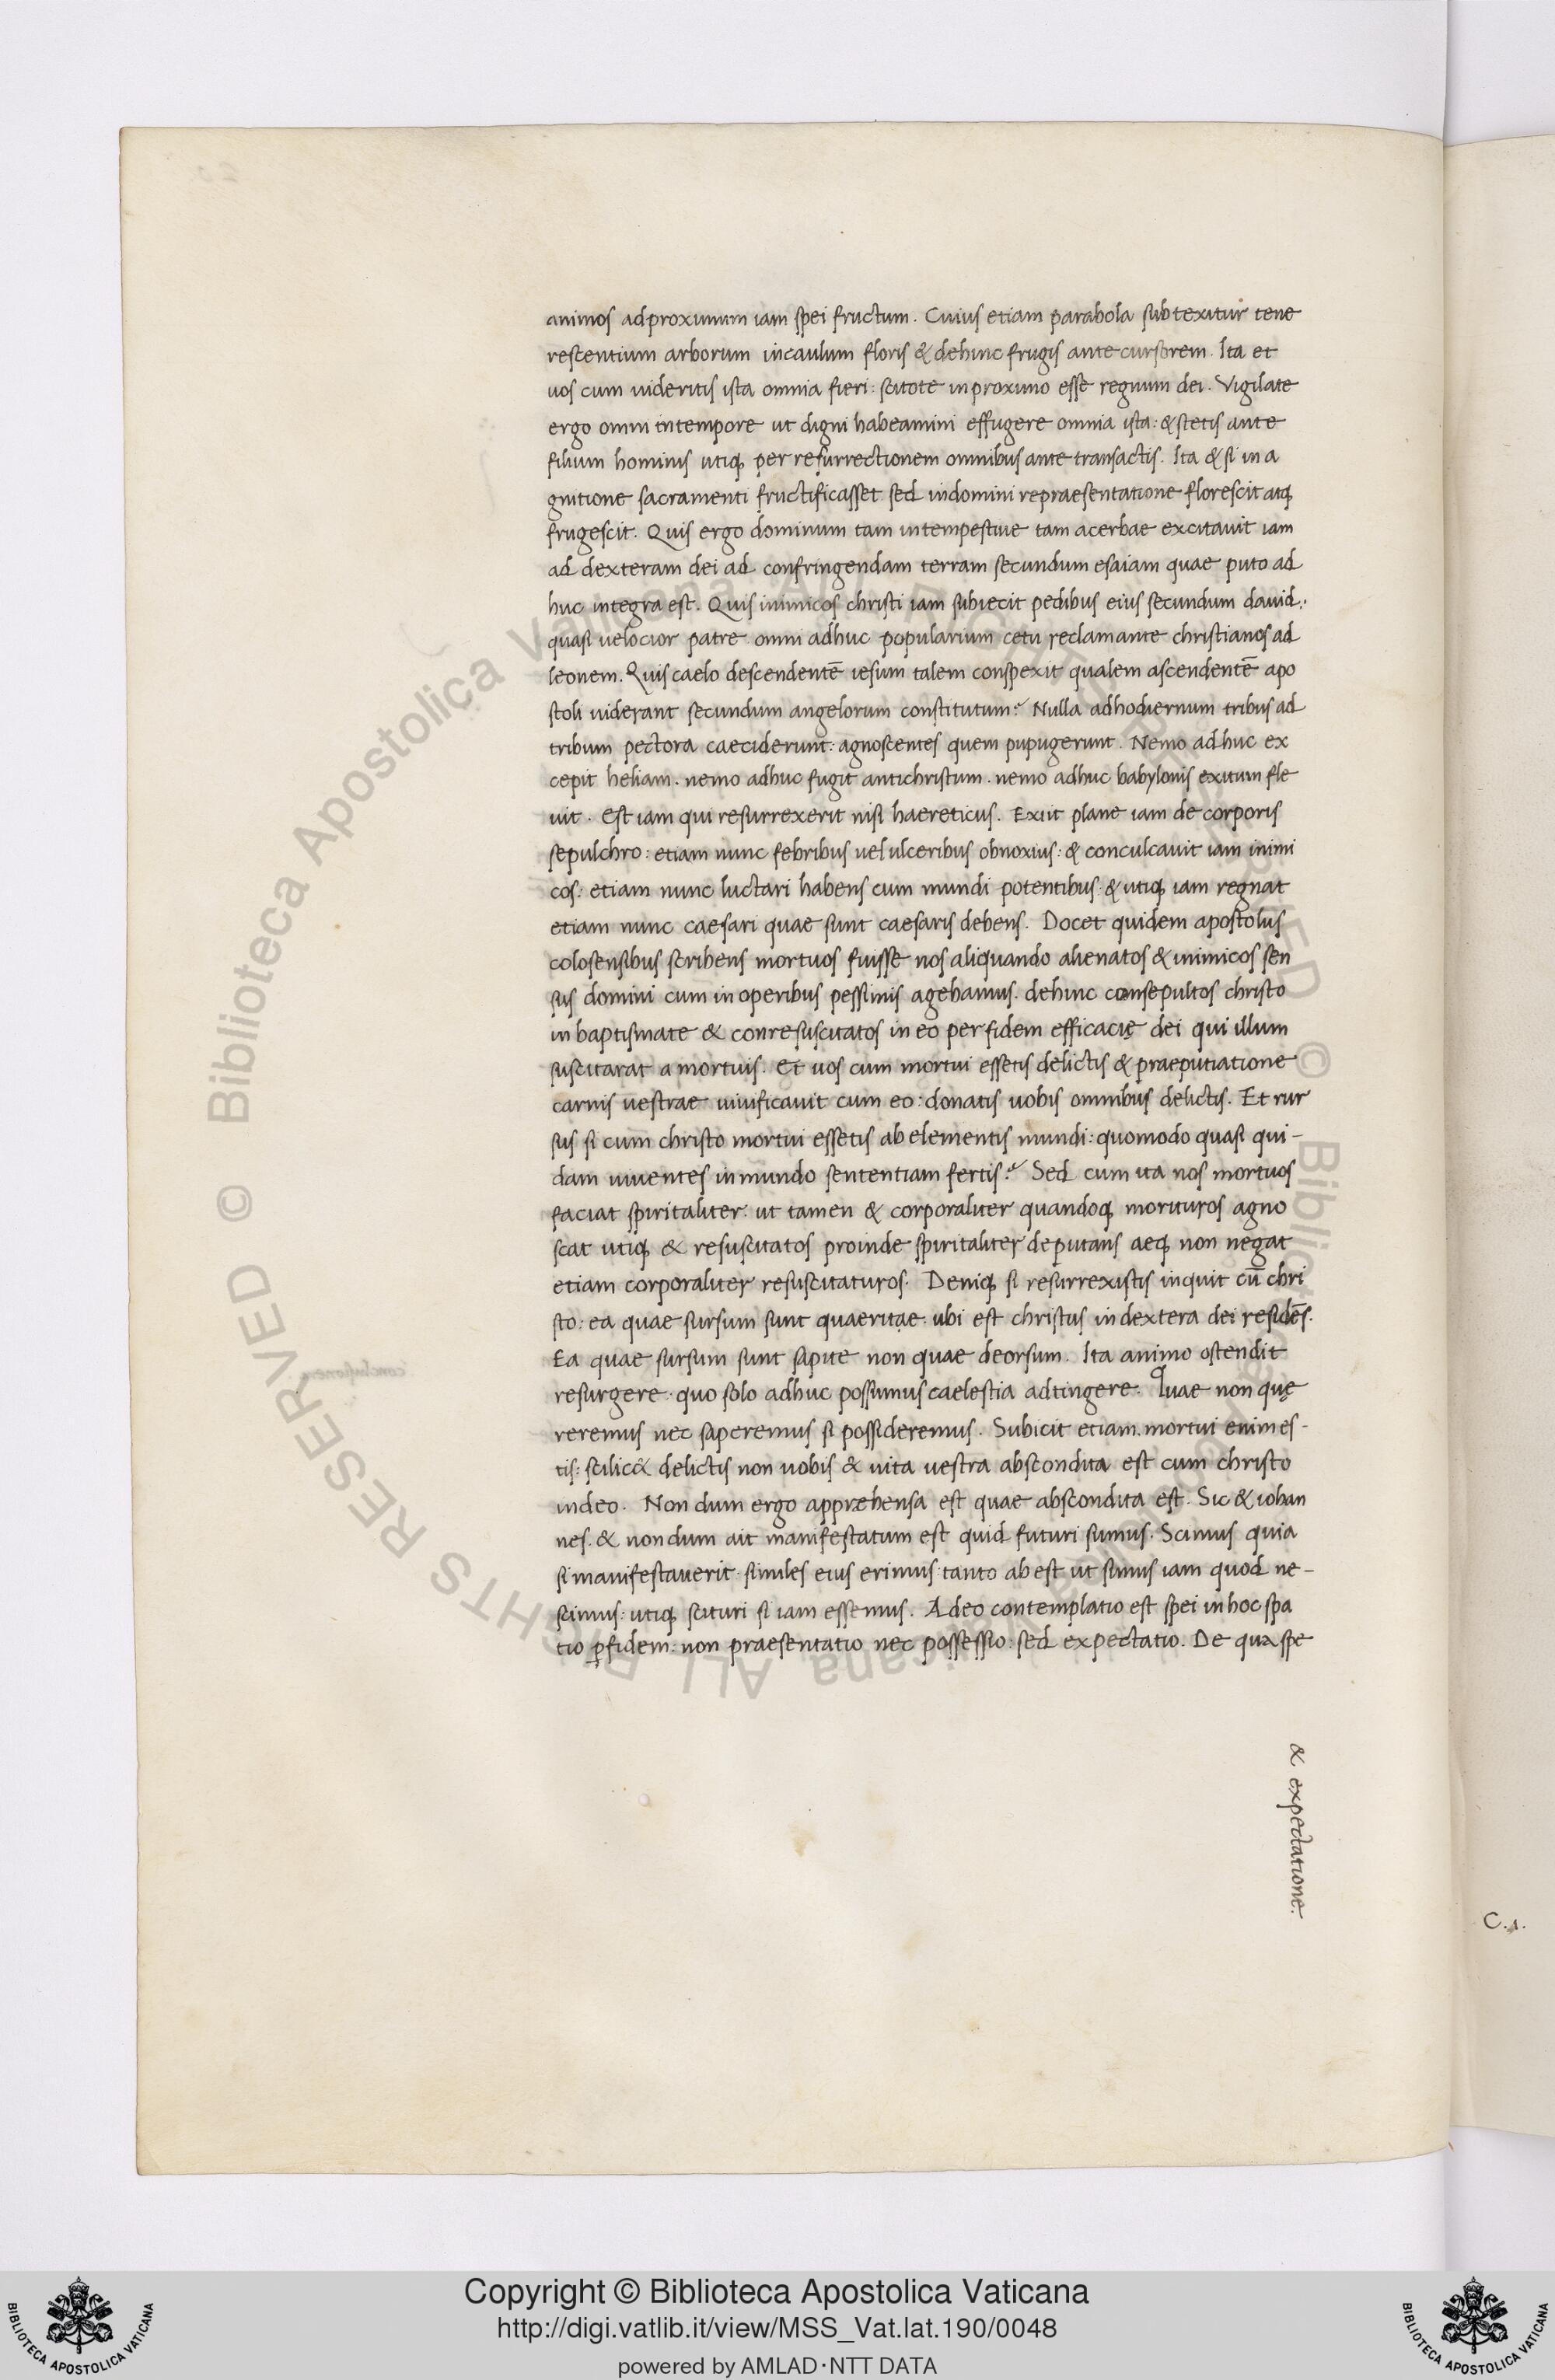 animos ad proximum iam spei fructum. Cuius etiam parabola subtexitur tene
rescentium arborum incaulum floris & dehinc frugis ante cursorem. Ita et
uos cum uideritis ista omnia fieri: scitote inproximo esse regnum dei. Vigilate
ergo omni intempore ut digni habeamini effugere omnia ista: & stetis ante
filium hominis utiq; per resurrectionem omnibus ante transactis. Ita & si in a
gnitione sacramenti fructificasset sed indomini repraesentatione florescit atq;
frugescit. Quis ergo dominum tam intempestiue tam acerbae excitauit iam
ad dexteram dei ad confringendam terram secundum esaiam quae puto ad
huc integra est. Quis inimicos christi iam subiecit pedibus eius secundum dauid.
quasi uelocior patre omni adhuc popularium cetu reclamante christianos ad
leonem. Quis caelo descendentē iesum talem conspexit qualem ascendentē apo
stoli uiderant secundum angelorum constitutum? Nulla adhodiernum tribus ad
tribum pectora caeciderunt: agnoscentes quem pupugerunt. Nemo adhuc ex
cepit heliam. nemo adhuc fugit antichristum. nemo adhuc babylonis exitum fle
uit. Est iam qui resurrexerit nisi haereticus. Exiit plane iam de corporis
sepulchro: etiam nunc febribus uel ulceribus obnoxius: & conculcauit iam inimi
cos: etiam nunc luctari habens cum mundi potentibus: & utiq; iam regnat
etiam nunc caesari quae sunt caesaris debens. Docet quidem apostolus
colosensibus scribens mortuos fuisse nos aliquando alienatos & inimicos sen
sus domini cum in operibus pessimis agebamus. dehinc consepultos christo
in baptismate & conresuscitatos in eo per fidem efficacię dei qui illum
suscitarat a mortuis. Et uos cum mortui essetis delictis & praeputiatione
carnis uestrae uiuificauit cum eo: donatis uobis omnibus delictis. Et rur
sus si cum christo mortui essetis ab elementis mundi: quomodo quasi qui-
dam uiuentes in mundo sententiam fertis? Sed cum ita nos mortuos
faciat spiritaliter: ut tamen & corporaliter quandoq; morituros agno
scat utiq; & resuscitatos proinde spiritaliter deputans aeq; non negat
etiam corporaliter resuscitaturos. Deniq; si resurrexistis inquit cū chri
sto: ea quae sursum sunt quaeritae: ubi est christus in dextera dei residēs.
Ea quae sursum sunt sapite non quae deorsum. Ita animo ostendit
resurgere: quo solo adhuc possumus caelestia adtingere. Quae non quę
reremus nec saperemus si possideremus. Subicit etiam. mortui enim es-
tis: scilic& delictis non uobis & uita uestra abscondita est cum christo
indeo. Non dum ergo appræhensa est quae abscondita est. Sic & iohan
nes. & nondum ait manifestatum est quid futuri sumus. Scimus quia
si manifestauerit similes eius erimus: tanto abest ut simus iam quod ne-
scimus: utiq; scituri si iam essemus. Adeo contemplatio est spei in hoc spa
tio p̱fidem: non praesentatio nec possessio: sed expectatio. De qua spe
& expectatione.
C.1.
© Biblioteca Apostolica Vaticana ALL RIGHTS RESERVED
© Biblioteca Apostolica Vaticana ALL RIGHTS RESERVED
Copyright © Biblioteca Apostolica Vaticana
http://digi.vatlib.it/view/MSS_Vat.lat.190/0048
powered by AMLAD·NTT DATA
BIBLIOTECA APOSTOLICA VATICANA
BIBLIOTECA APOSTOLICA VATICANA